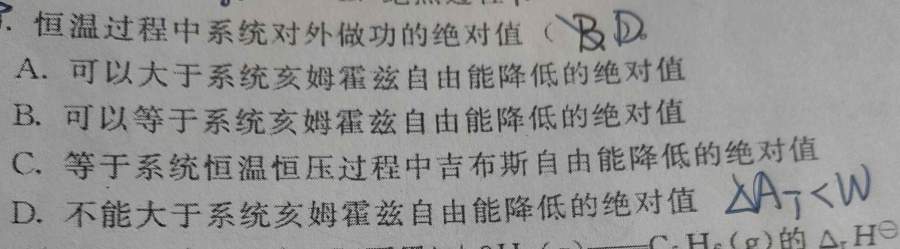 恒温过程中系统对外做功的绝对值（ B D。
A. 可以大于系统亥姆霍兹自由能降低的绝对值
B. 可以等于系统亥姆霍兹自由能降低的绝对值
C. 等于系统恒温恒压过程中吉布斯自由能降低的绝对值
D. 不能大于系统亥姆霍兹自由能降低的绝对值 ΔA_T<W
(g)的 Δ_r H^⊖